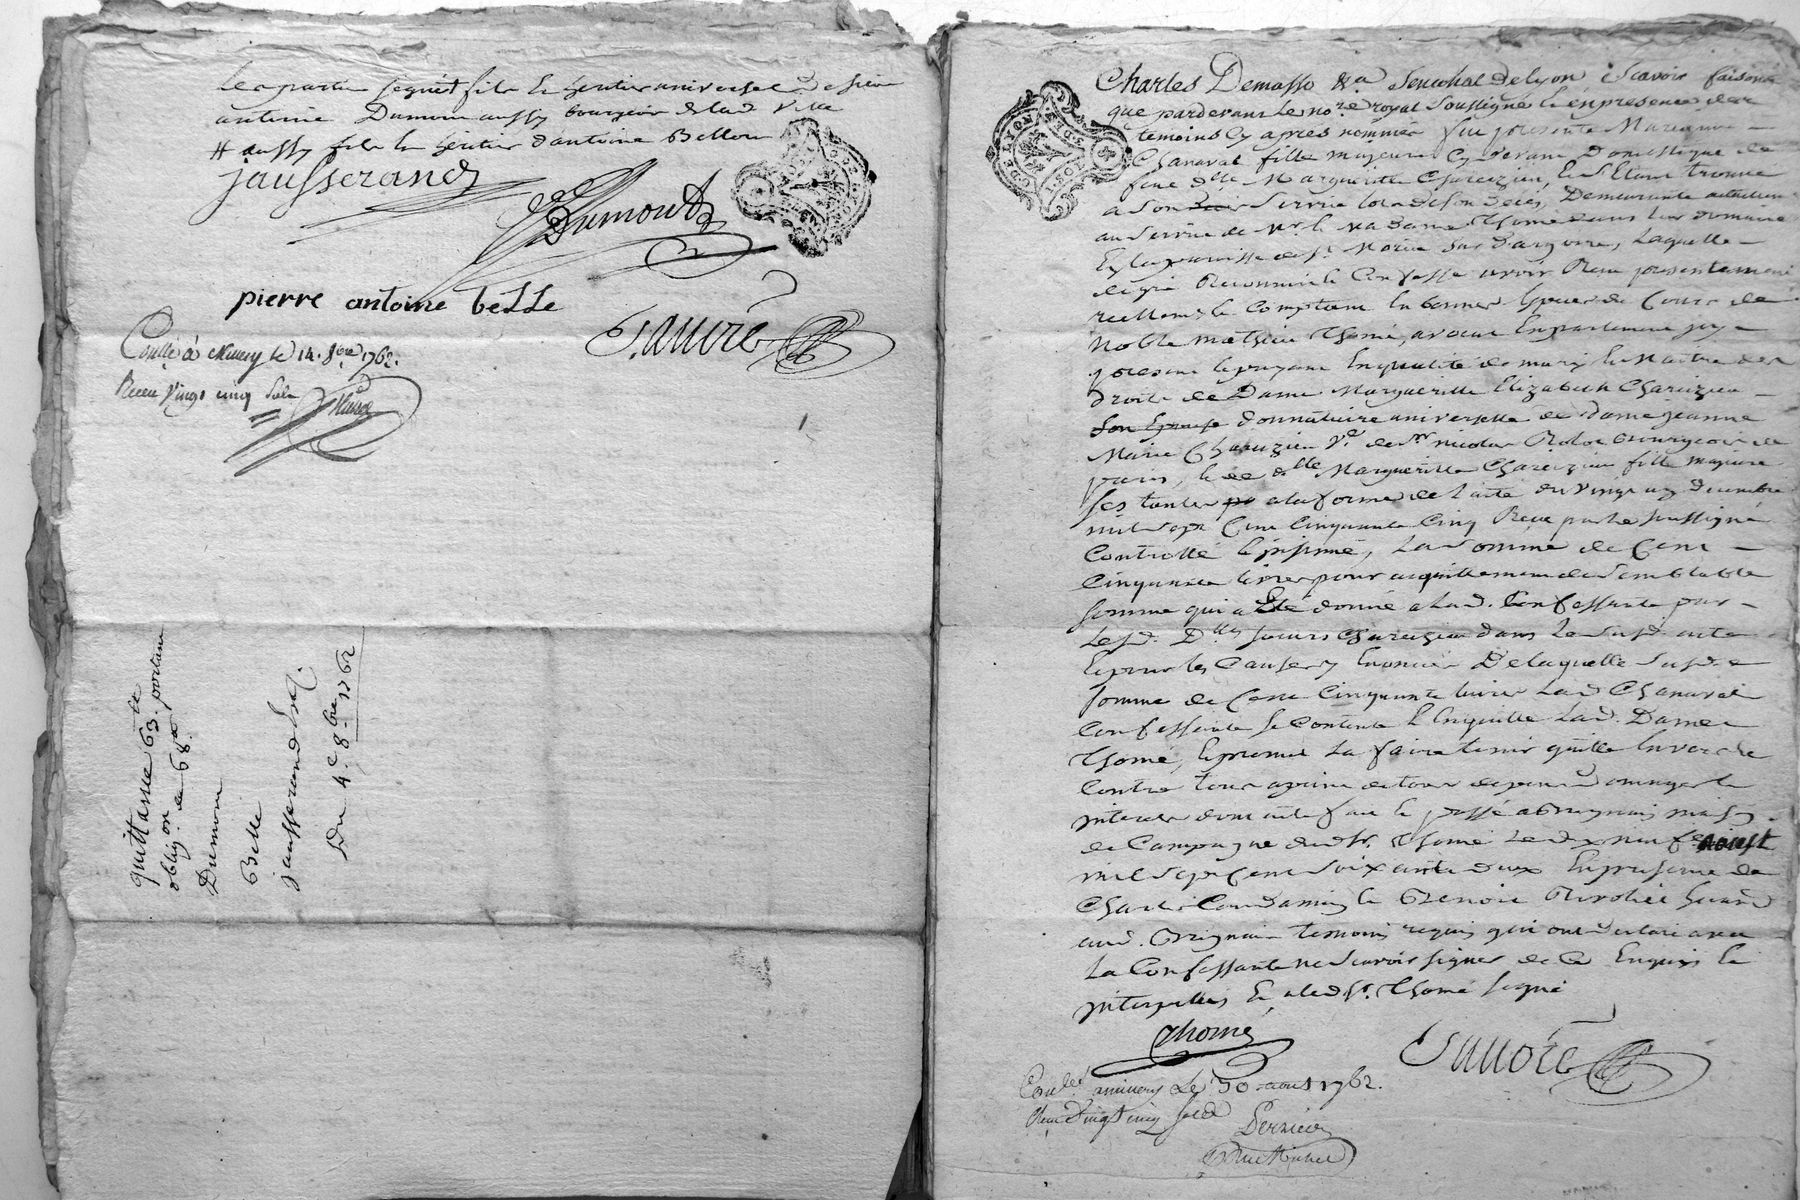 les parties signés fils & héritier universel de sieur
antoine Dumon aussy bourgeois de lad ville
# aussy fils & héritier d'antoine Belle
jausserand
Dumont
pierre antoine belle
Sauvre
Conllé à le 14. 8bre 1762.
Receu vingt cinq sols
quittasse 63.tt portant
obligon de 68tt
Dumon
Belle
jausserand
Du 4e. 8bre 1762
Charles Demasso &a Senechal de lyon scavoir faisons
que pardevant le nore. royal soussigné & en presence des
temoins cy apres nommés fut presente
fille majeure cy devant Domestique de
feue dlle Margueritte Chareizieu, & s'etant trouvée
a son service lors de son deces, Demeurante actuellement
au service de Mr. & Madame Thomé dans leur domaine
En la parroisse de st. , Laquelle
de gré Reconnoit & Confesse avoir Receu presentement
reellemt. & Comptant En bonnes Especes du Cours de
Noble Thomé, avocat En parlement icy
present & payant En qualité de mary & Maitre des
droits de Dame Margueritte Elizabeth Chareizieu
son Epouse donnataire universelle de dame jeanne
Marie Chareizieu Ve. de sr nicolas bourgeois de
paris, & de dlle Margueritte Chareizieu fille majeure
ses tantes a la forme de l'acte du vingt un decembre
mil sept Cent Cinquante Cinq Receu par le soussigné
Controllé & insinué, La somme de Cent
Cinquante livres pour acquittement de semblable
somme qui a Eté donnée a lad. Confessante par
Lesd. Dlles soeurs Chareizieu dans le susd. acte
& pour les Causes y Enoncées De laquelle susd.
somme de Cent Cinquante livres Lad
Confessante se Contente & En quitte Lad. Dame
Thomé, & promet La faire tenir quitte Envers &
Contre tous a peine de tous depens Domages &
interets dont acte fait & passé a Brignais maison
de Campagne dudt. sr. Thomé Le dix neuf aoust
mil sept Cent soixante deux En presence de
Charles & Benoit
aud. Brignais temoins requis qui ont declaré avec
La Confessante ne scavoir signer de Ce Enquis &
interpellés Et led. sr. Thomé signé
Thomé
Sauvre
Conllé Le 30 aout 1762.
Receu vingt cinq sols